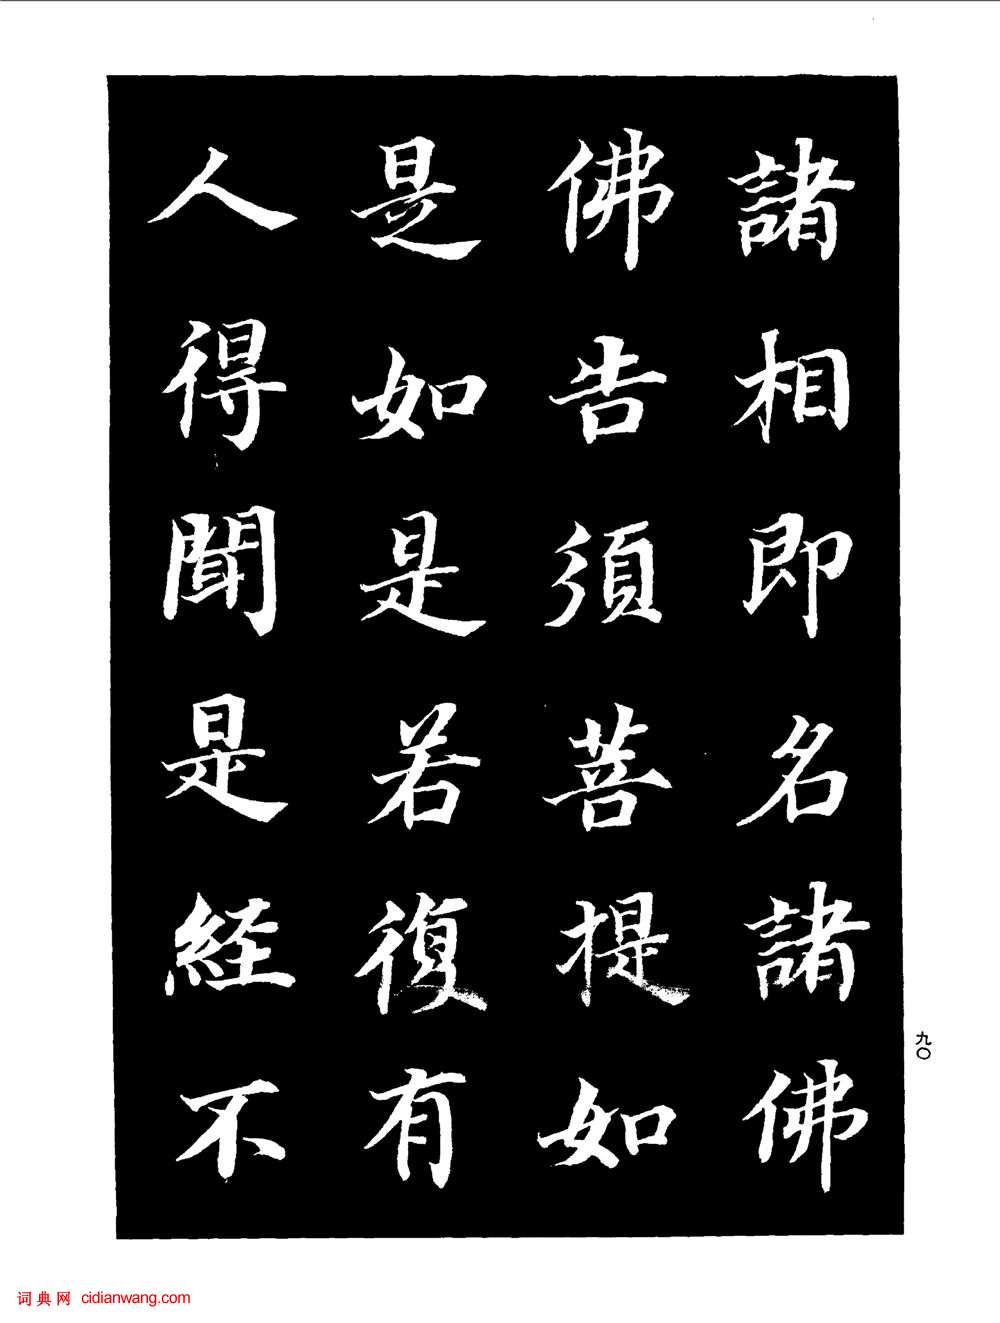 諸相即名諸佛
佛告須菩提如
是如是若復有
人得聞是経不
九〇
词典网 cidianwang.com